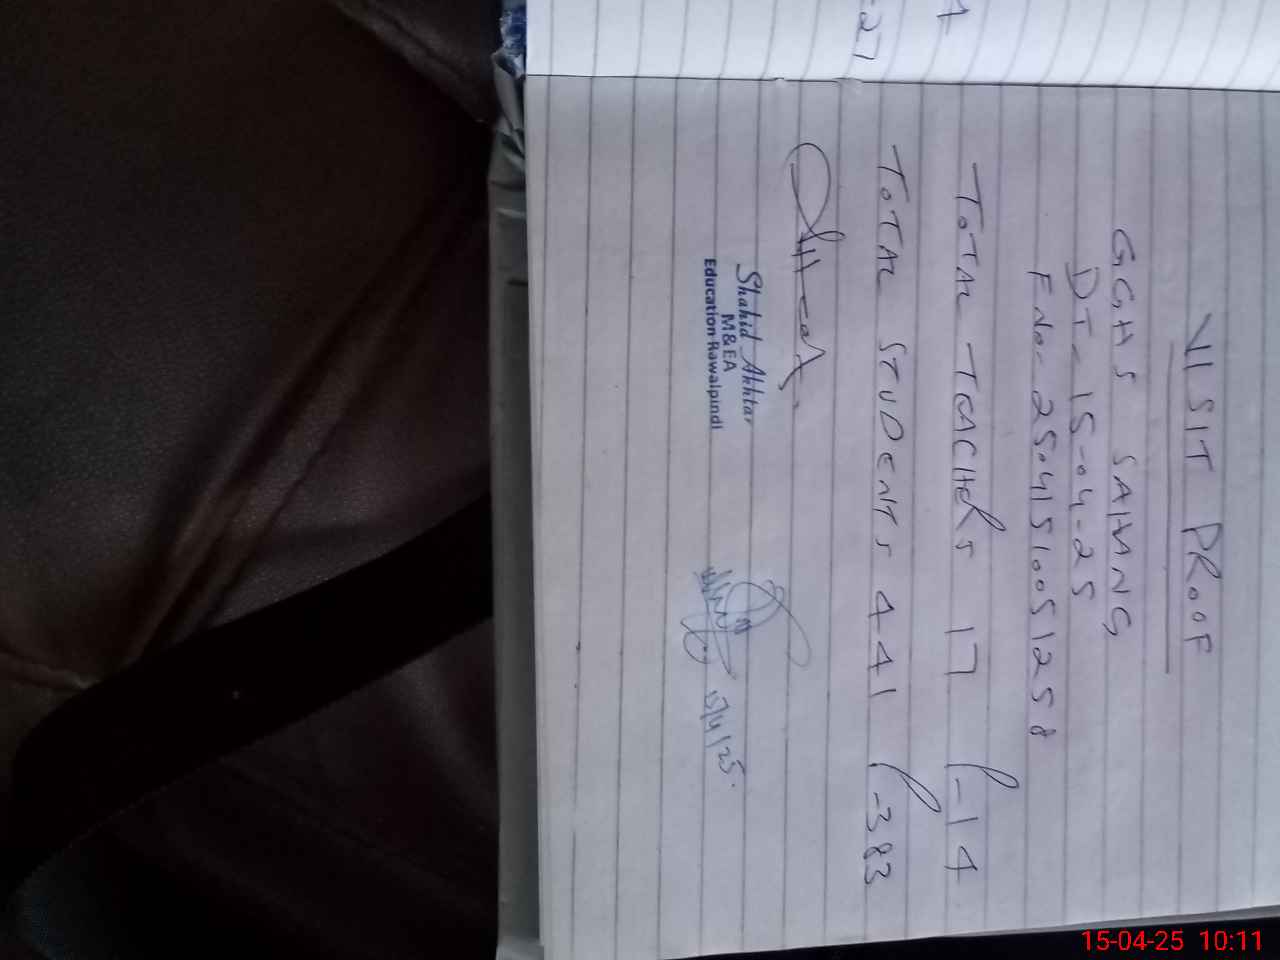 A
-27
VISIT PROOF
GGHS SAHANG
DT- 15-04-25
F No- 25041510051258
TOTAL TEACHERS 17 P-14
TOTAL STUDENTS 441 P-383
Shahid Akhtar
M&EA
Education Rawalpindi
15/4/25.
15-04-25 10:11